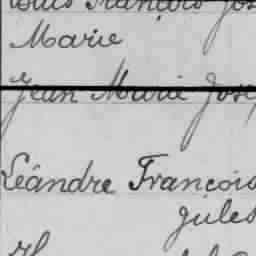 Louis François Jos
Marie
Jean Marie Josep
Léandre François
Jules